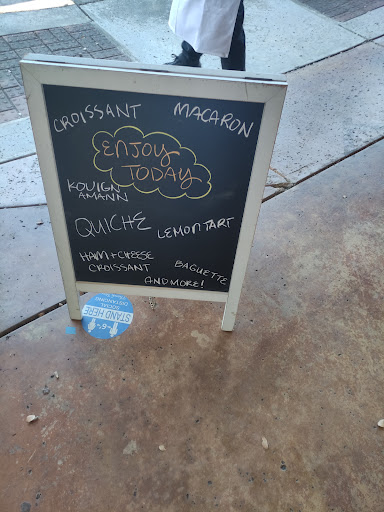 CROISSANT
MACARON
ENJOY
TODAY
KOUIGN
AMANN
QUICHE
LEMON TART
HAM + CHEESE
CROISSANT
BAGUETTE
AND MORE!
STAND HERE
SOCIAL
DISTANCING